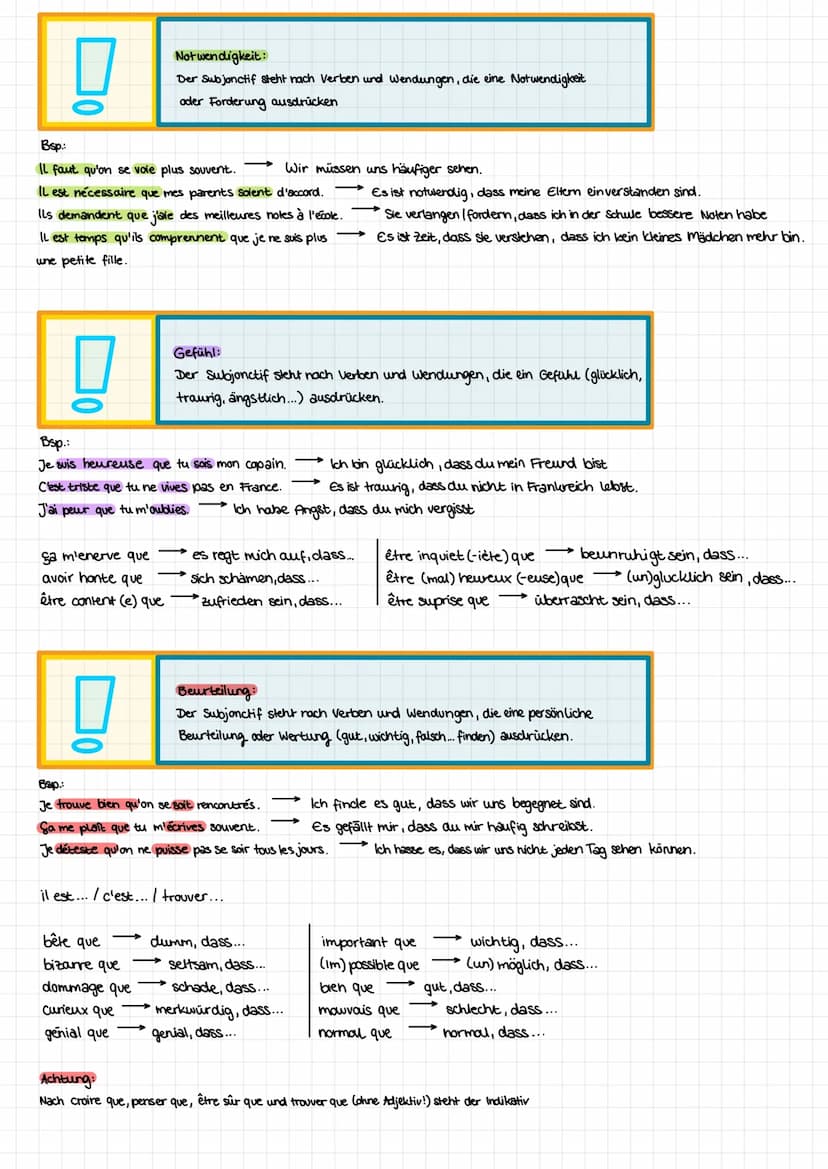 Notwendigkeit:
Der Subjonctif steht nach Verben und Wendungen, die eine Notwendigkeit
oder Forderung ausdrücken
Bsp.:
Il faut qu'on se voie plus souvent. → Wir müssen uns häufiger sehen.
Il est nécessaire que mes parents soient d'accord. → Es ist notwendig, dass meine Eltern einverstanden sind.
Ils demandent que j'aie des meilleures notes à l'école. → Sie verlangen / fordern, dass ich in der Schule bessere Noten habe
Il est temps qu'ils comprennent que je ne suis plus → Es ist Zeit, dass sie verstehen, dass ich kein kleines Mädchen mehr bin.
une petite fille.
Gefühl:
Der Subjonctif steht nach Verben und Wendungen, die ein Gefühl (glücklich,
traurig, ängstlich...) ausdrücken.
Bsp.:
Je suis heureuse que tu sois mon copain. → Ich bin glücklich, dass du mein Freund bist
C'est triste que tu ne vives pas en France. → Es ist traurig, dass du nicht in Frankreich lebst.
J'ai peur que tu m'oublies. → Ich habe Angst, dass du mich vergisst
ça m'enerve que → es regt mich auf, dass... être inquiet (-iète) que → beunruhigt sein, dass...
avoir honte que → sich schämen, dass... être (mal) heureux (-euse) que → (un)glücklich sein, dass...
être content (e) que → zufrieden sein, dass... être suprise que → überrascht sein, dass...
Beurteilung:
Der Subjonctif steht nach Verben und Wendungen, die eine persönliche
Beurteilung oder Wertung (gut, wichtig, falsch... finden) ausdrücken.
Bsp.:
Je trouve bien qu'on se soit rencontrés. → Ich finde es gut, dass wir uns begegnet sind.
Ça me plaît que tu m'écrives souvent. → Es gefällt mir, dass du mir häufig schreibst.
Je déteste qu'on ne puisse pas se soir tous les jours. → Ich hasse es, dass wir uns nicht jeden Tag sehen können.
il est... / c'est... / trouver...
bête que → dumm, dass... important que → wichtig, dass...
bizarre que → seltsam, dass... (im) possible que → (un) möglich, dass...
dommage que → schade, dass... bien que → gut, dass...
curieux que → merkwürdig, dass... mauvais que → schlecht, dass...
génial que → genial, dass... normal que → normal, dass...
Achtung:
Nach croire que, penser que, être sûr que und trouver que (ohne Adjektiv!) steht der Indikativ